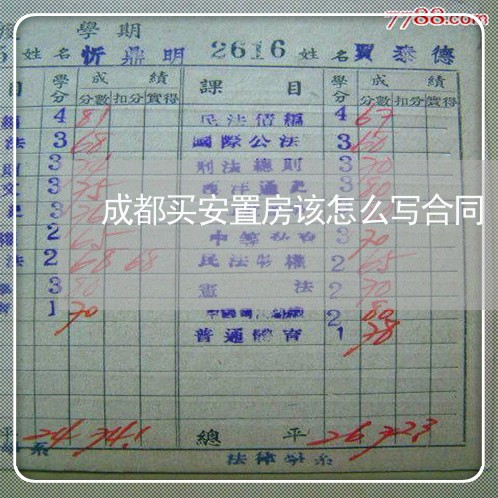 7788.com
學期
5 姓名 忻鼎明 2616 姓名 賈泰德
目 學分 成績 分數 扣分 實得 課目 學分 成績 分數 扣分 實得
4 81 民法債編 4 67
法 3 68 國際公法 3 60
3 刑法總則 3 70
3 75 西洋通史 3 80
3
成都买安置房该怎么写合同
2 65 中等 3 70
法 2 68 68 民法物權 2 65
3 80 憲法 2 70
1 70 2 80
普通體育 1 78
平 24 74.1 總平 26 72.3
系 法律學系